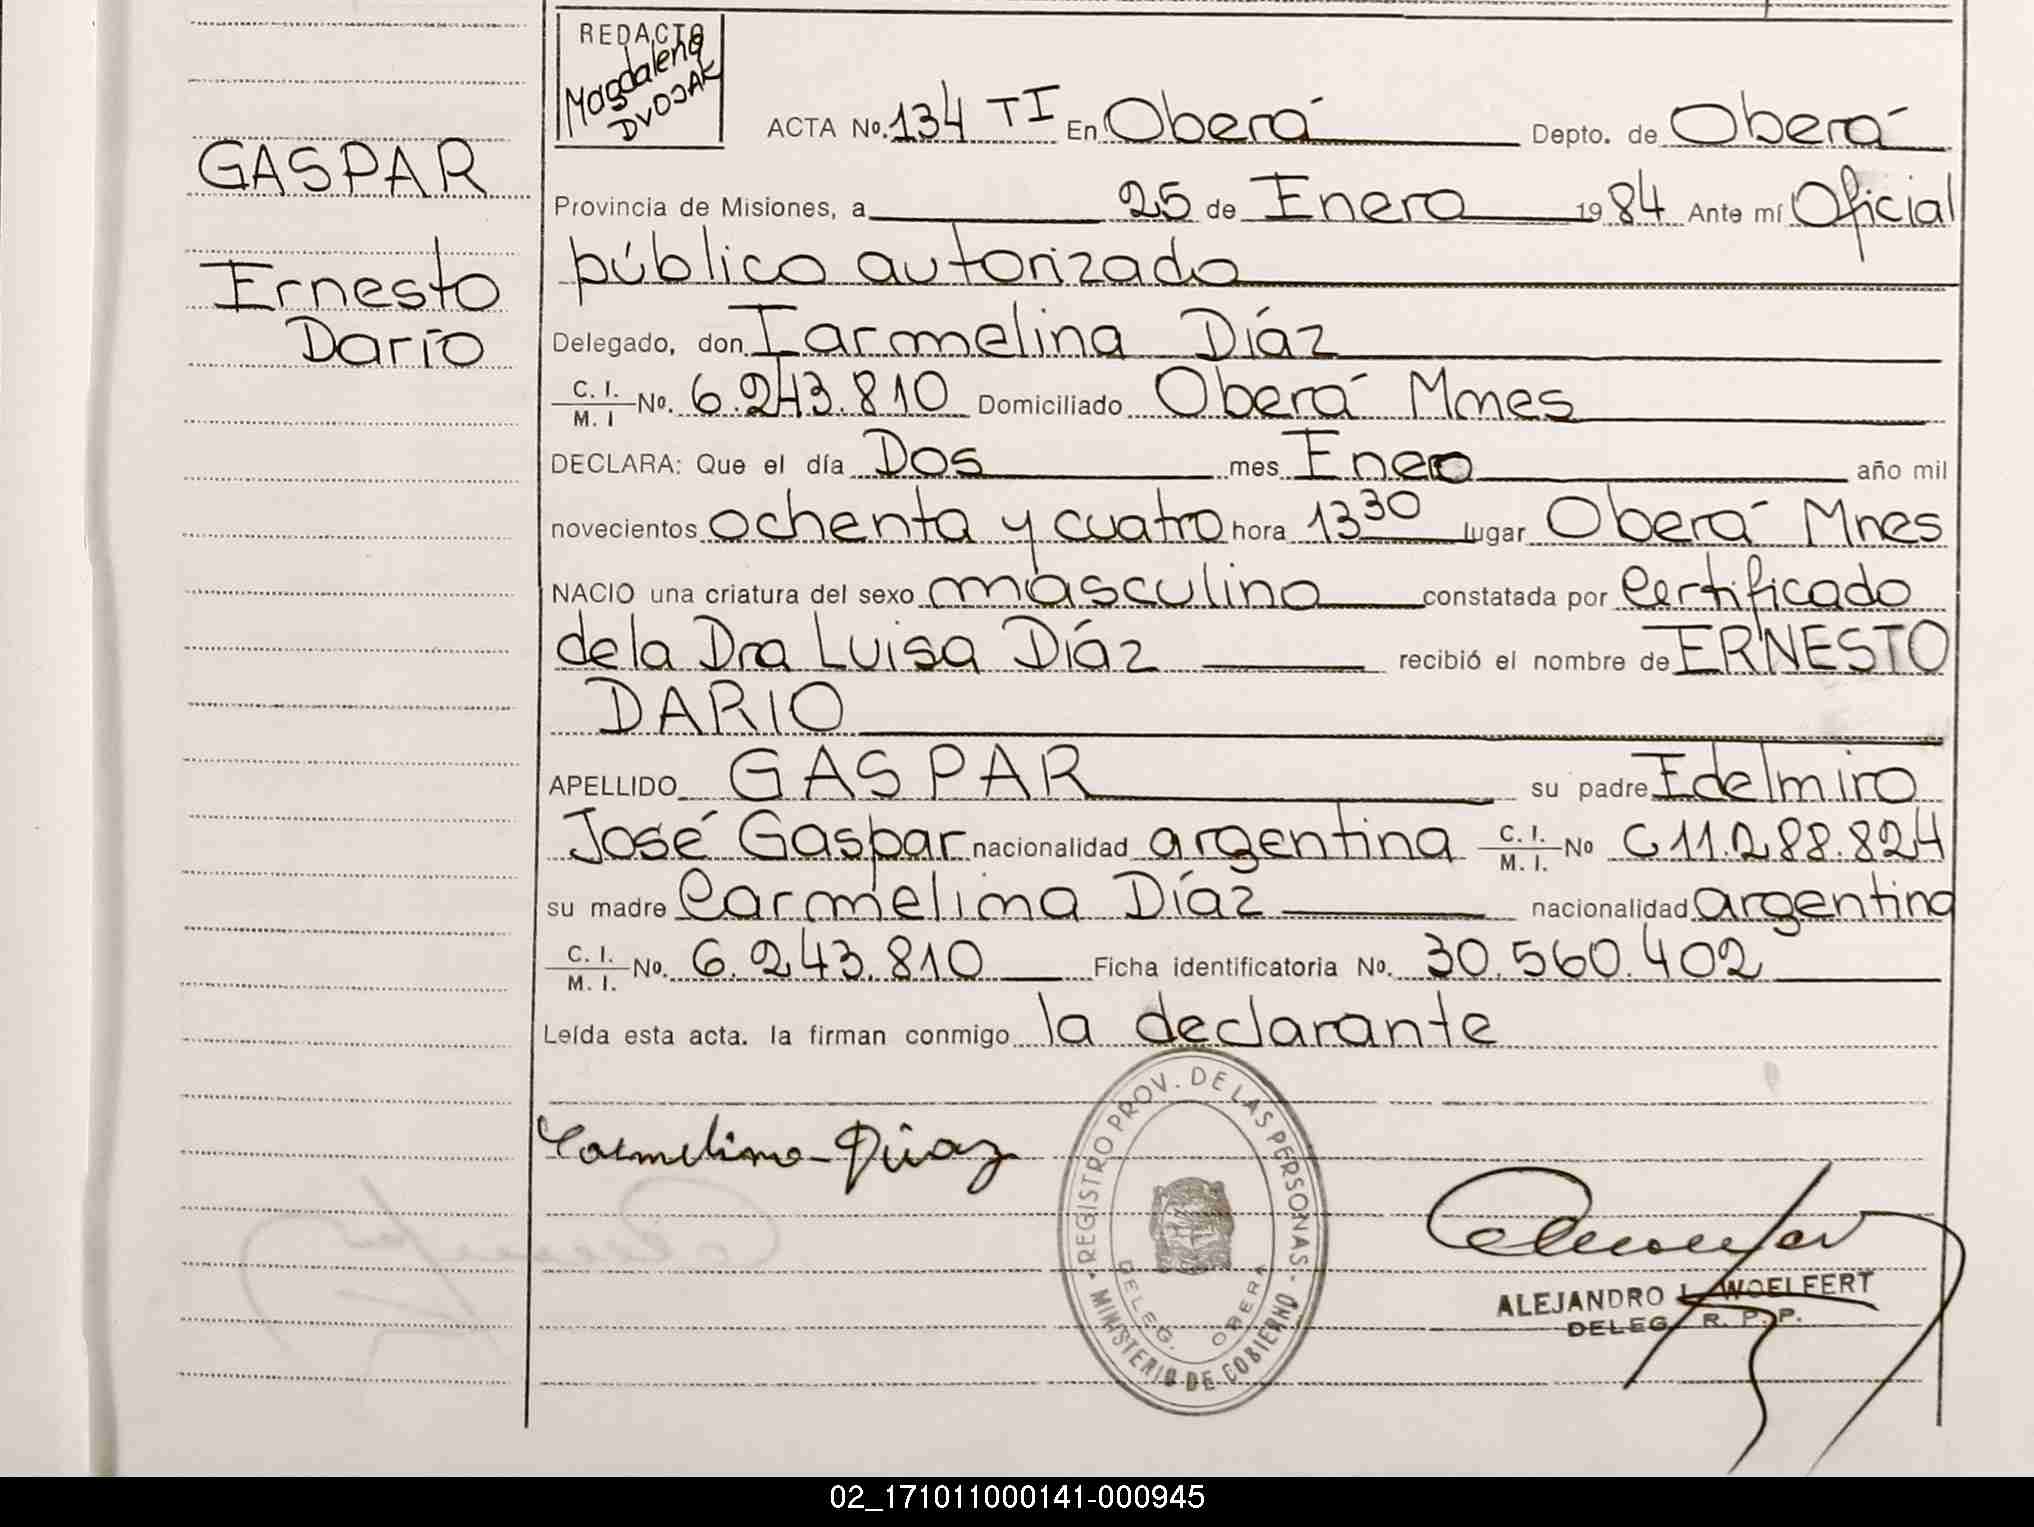 REDACTO
Magdalena
DVOJAK
ACTA No. 134 TI En Oberá Depto. de Oberá
GASPAR
Provincia de Misiones, a 25 de Enero 1984 Ante mí Oficial
Ernesto
público autorizado
Darío
Delegado, don Iarmelina Díaz
C. I. / M. I No. 6.243.810 Domiciliado Oberá Mnes
DECLARA: Que el día Dos mes Eneo año mil
novecientos ochenta y cuatro hora 13 30 lugar Oberá Mnes
NACIO una criatura del sexo masculino constatada por Certificado
de la Dra Luisa Díaz recibió el nombre de ERNESTO
DARIO
APELLIDO GASPAR su padre Edelmiro
José Gaspar nacionalidad argentina C. I. / M. I. No C 11.288.824
su madre Carmelina Díaz nacionalidad argentina
C. I. / M. I. No. 6.243.810 Ficha identificatoria No. 30.560.402
Leída esta acta. la firman conmigo la declarante
Carmelina Díaz
REGISTRO PROV. DE LAS PERSONAS
MINISTERIO DE GOBIERNO
DELEG. OBERA
ALEJANDRO L. WOELFERT
DELEG. R. P. P.
02_171011000141-000945